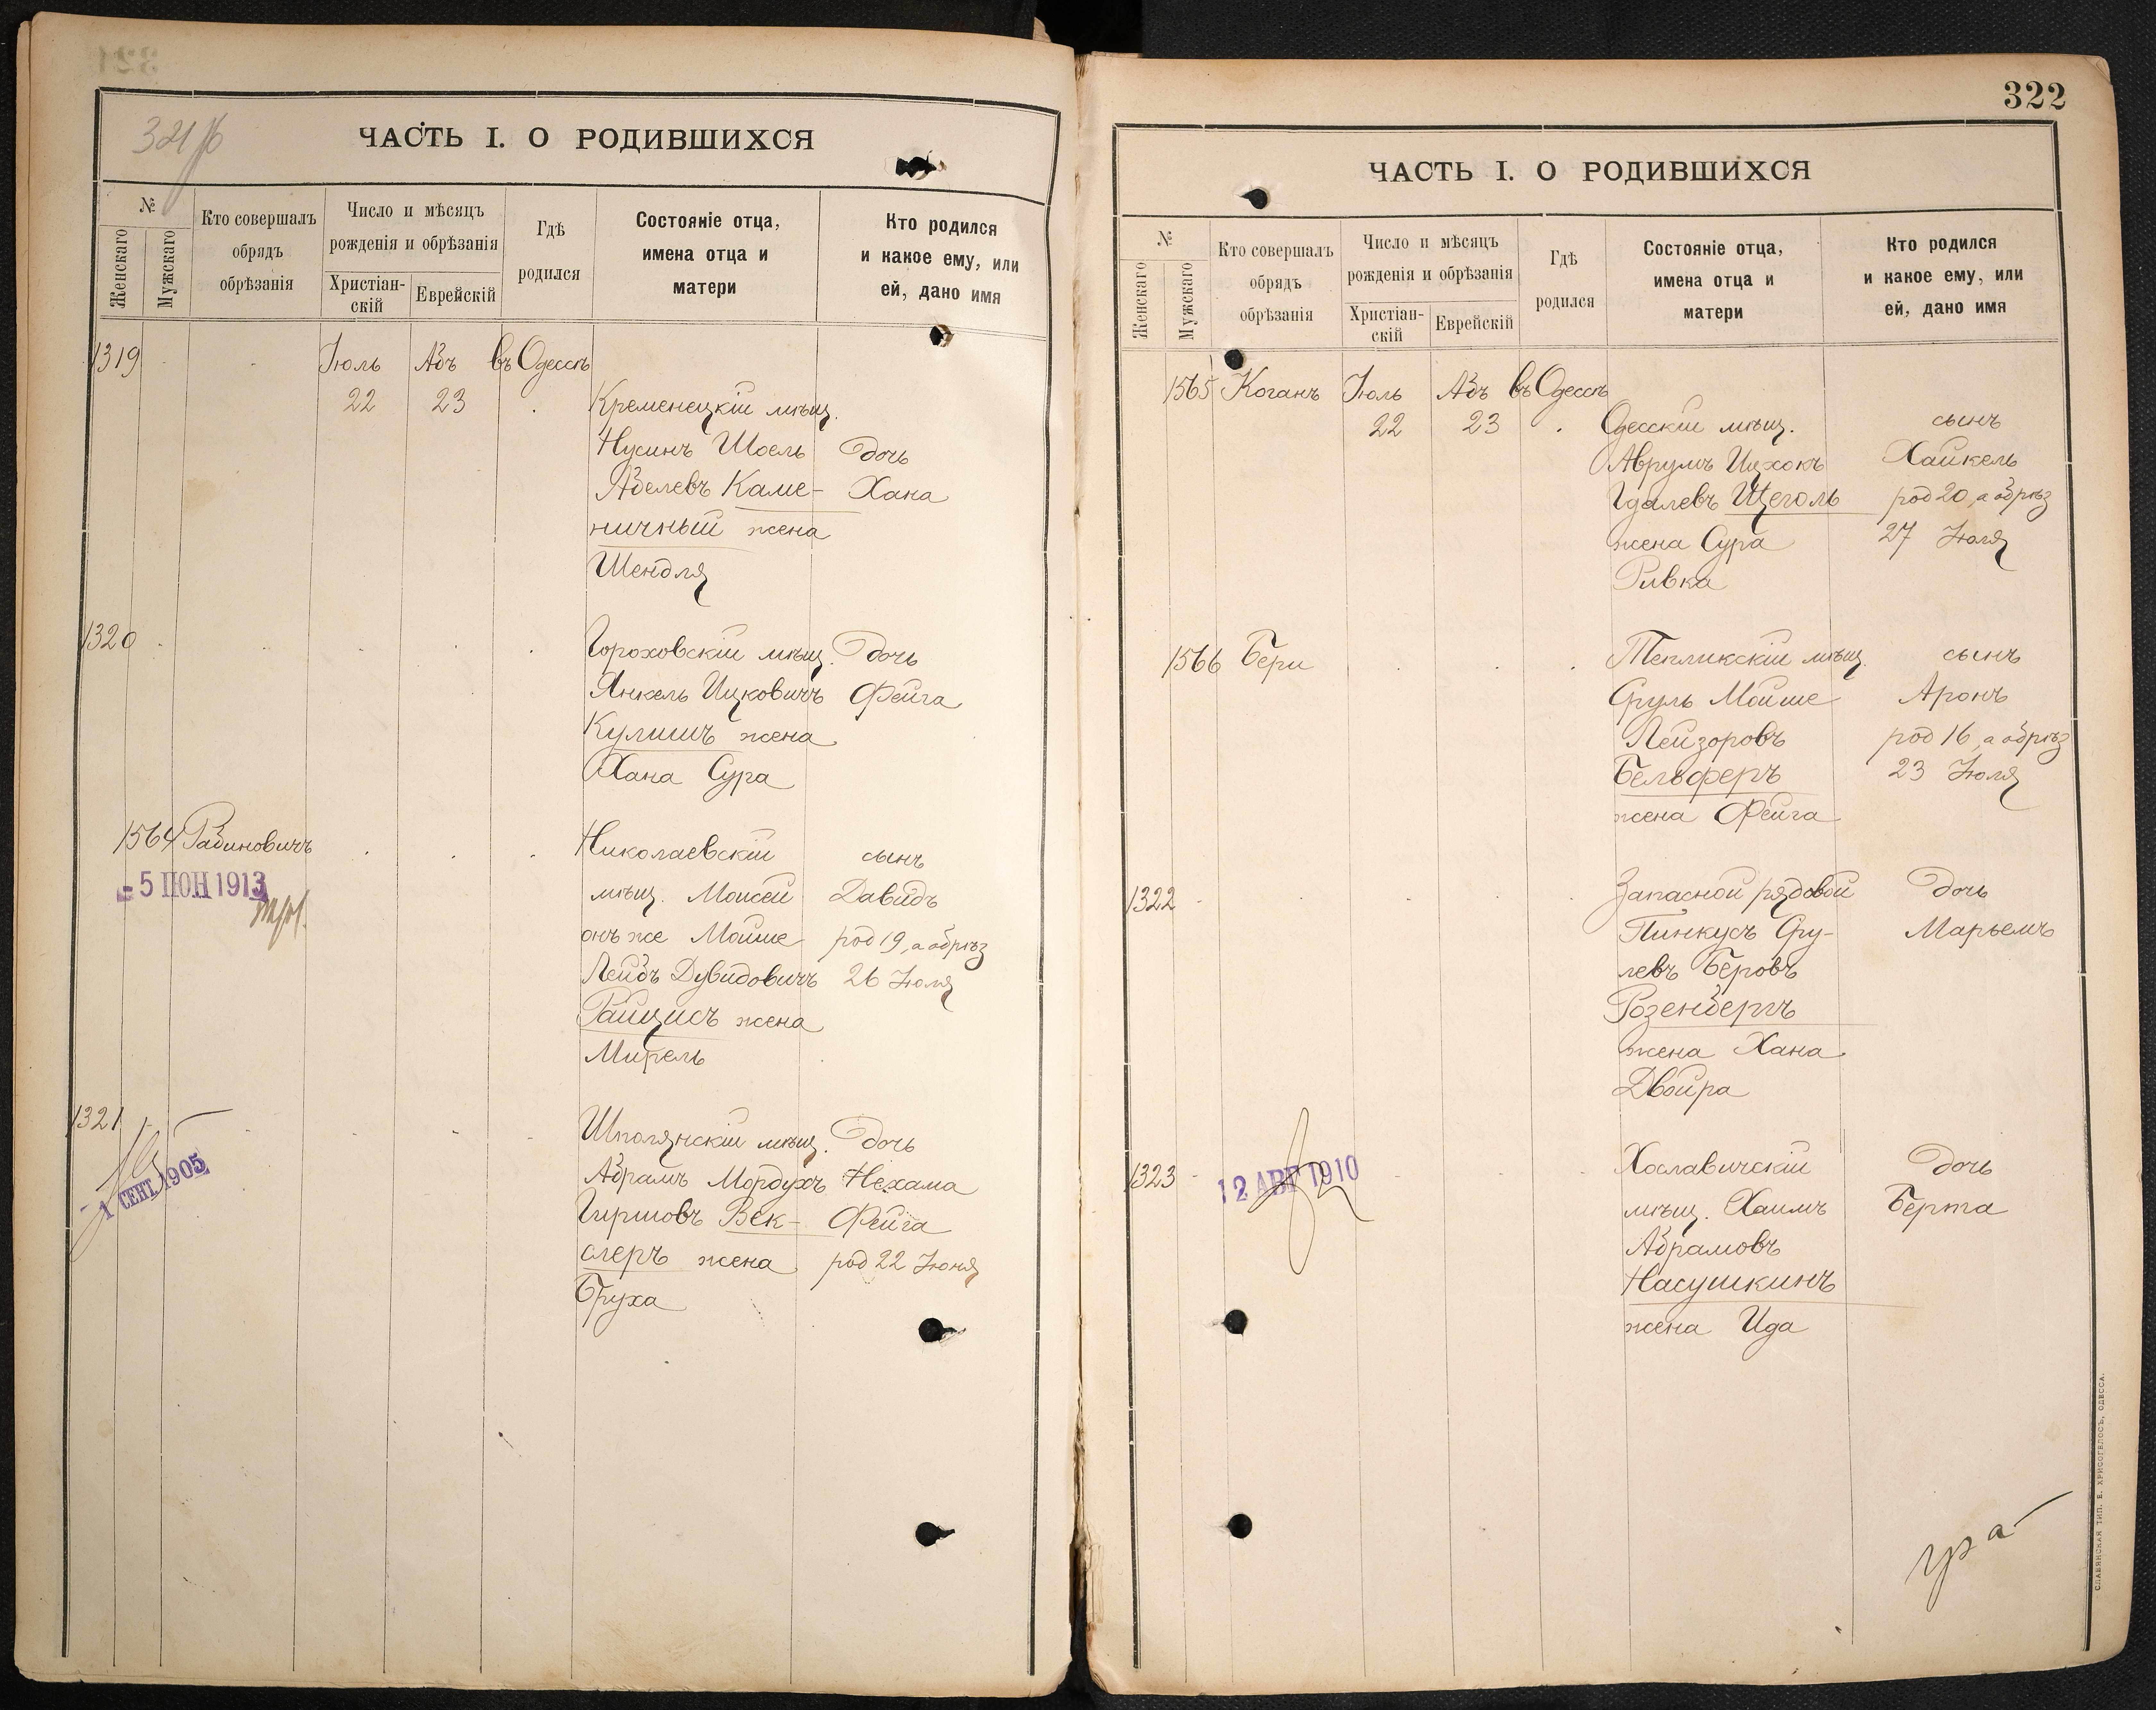 321 об
ЧАСТЬ I. О РОДИВШИХСЯ
№
Женскаго
Мужскаго
Кто совершалъ
обрядъ
обрѣзанія
Число и мѣсяцъ
рожденія и обрѣзанія
Христіан-
скій
Еврейскій
Гдѣ
родился
Состояніе отца,
имена отца и
матери
Кто родился
и какое ему, или
ей, дано имя
1319 Іюль Абъ въ Одессѣ
22 23 Кременецкій мѣщ.
Нусинъ Шоель дочь
Абелевъ Каме- Хана
ничный жена
Шендля
1320 Гороховскій мѣщ. дочь
Янкель Ицковичъ Фейга
Кулишъ жена
Хана Сура
1564 Рабиновичъ Николаевскій сынъ
- 5 ІЮН 1913
мѣщ. Моисей Давидъ
онъ же Мойше род 19, а обрѣз
Лейбъ Дувидовичъ 26 Іюля
Райцисъ жена
Мирель
1321 Шполянскій мѣщ. дочь
- 1 СЕНТ. 1905
Абрамъ Мордухъ Нехама
Гиршовъ Век- Фейга
слеръ жена род 22 Іюня
Бруха
322
ЧАСТЬ I. О РОДИВШИХСЯ
№
Женскаго
Мужскаго
Кто совершалъ
обрядъ
обрѣзанія
Число и мѣсяцъ
рожденія и обрѣзанія
Христіан-
скій
Еврейскій
Гдѣ
родился
Состояніе отца,
имена отца и
матери
Кто родился
и какое ему, или
ей, дано имя
1565 Коганъ Іюль Абъ въ Одессѣ
22 23 Одесскій мѣщ. сынъ
Аврумъ Ицхокъ Хайкель
Гдалевъ Щеголь род 20, а обрѣз
жена Сура 27 Іюля
Ривка
1566 Бери Тепликскій мѣщ. сынъ
Сруль Мойше Аронъ
Лейзоровъ род 16, а обрѣз
Бельферъ 23 Іюля
жена Фейга
1322 Запасной рядовой дочь
Пинкусъ Сру- Марьемъ
левъ Беровъ
Розенбергъ
жена Хана
Двойра
1323 Хославичскій дочь
12 АВГ 1910
мѣщ. Хаимъ Берта
Абрамовъ
Насушкинъ
жена Ида
СЛАВЯНСКАЯ ТИП. Е. ХРИСОГЕЛОСЪ, ОДЕССА.